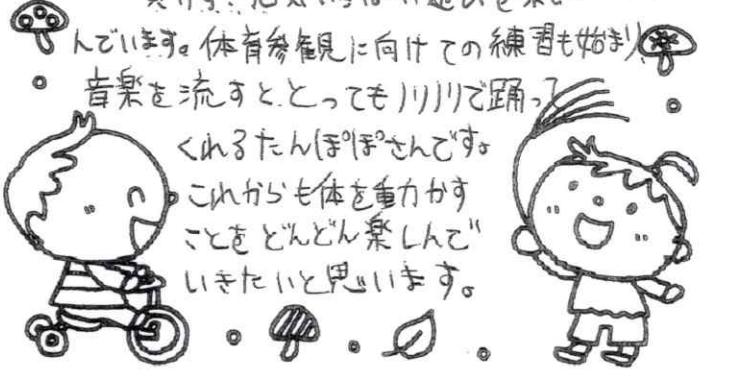 んでいます。体育参観に向けての練習も始まり、
音楽を流すと、とってもノリノリで踊って
くれるたんぽぽさんです。
これからも体を動かす
ことをどんどん楽しんで
いきたいと思います。